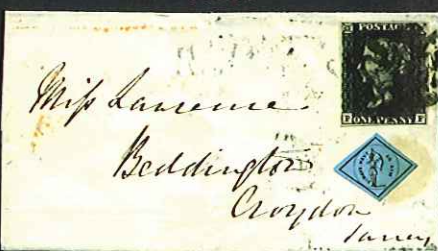 POSTAGE
ONE PENNY
Miss Lawrence
Beddington
Croydon
Surrey